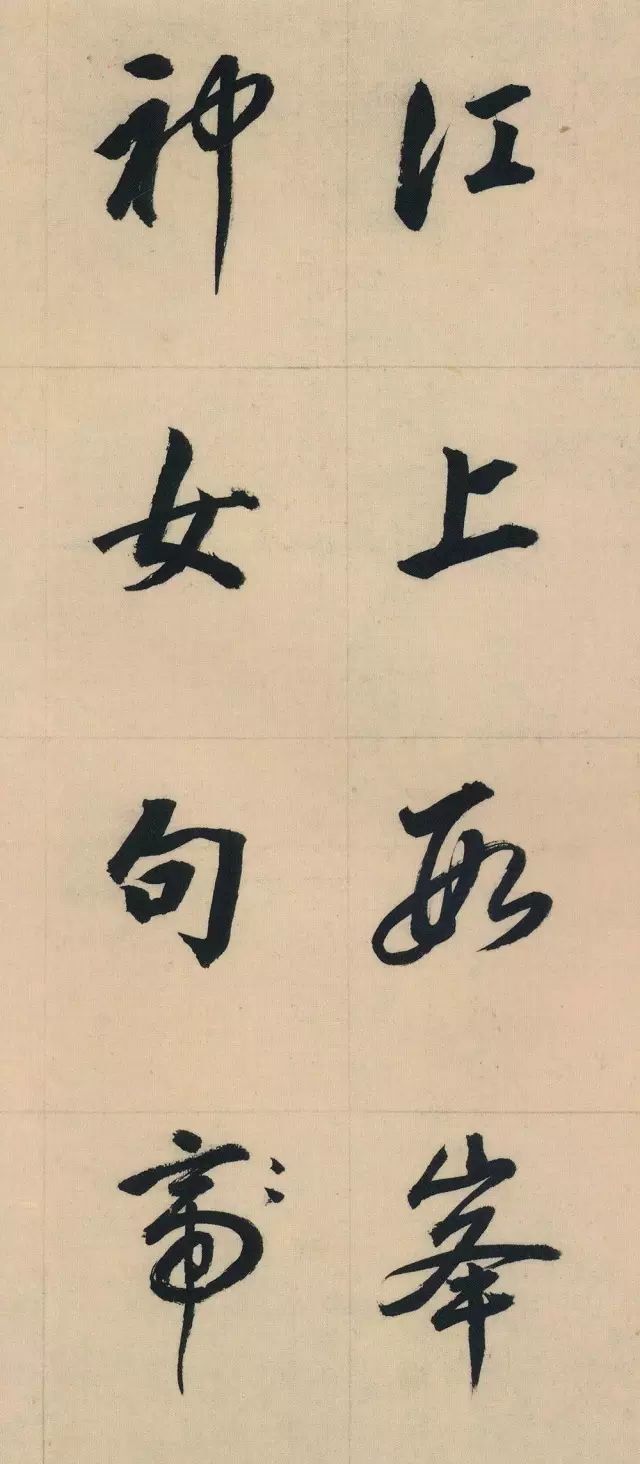 江上數峯
神女句帝